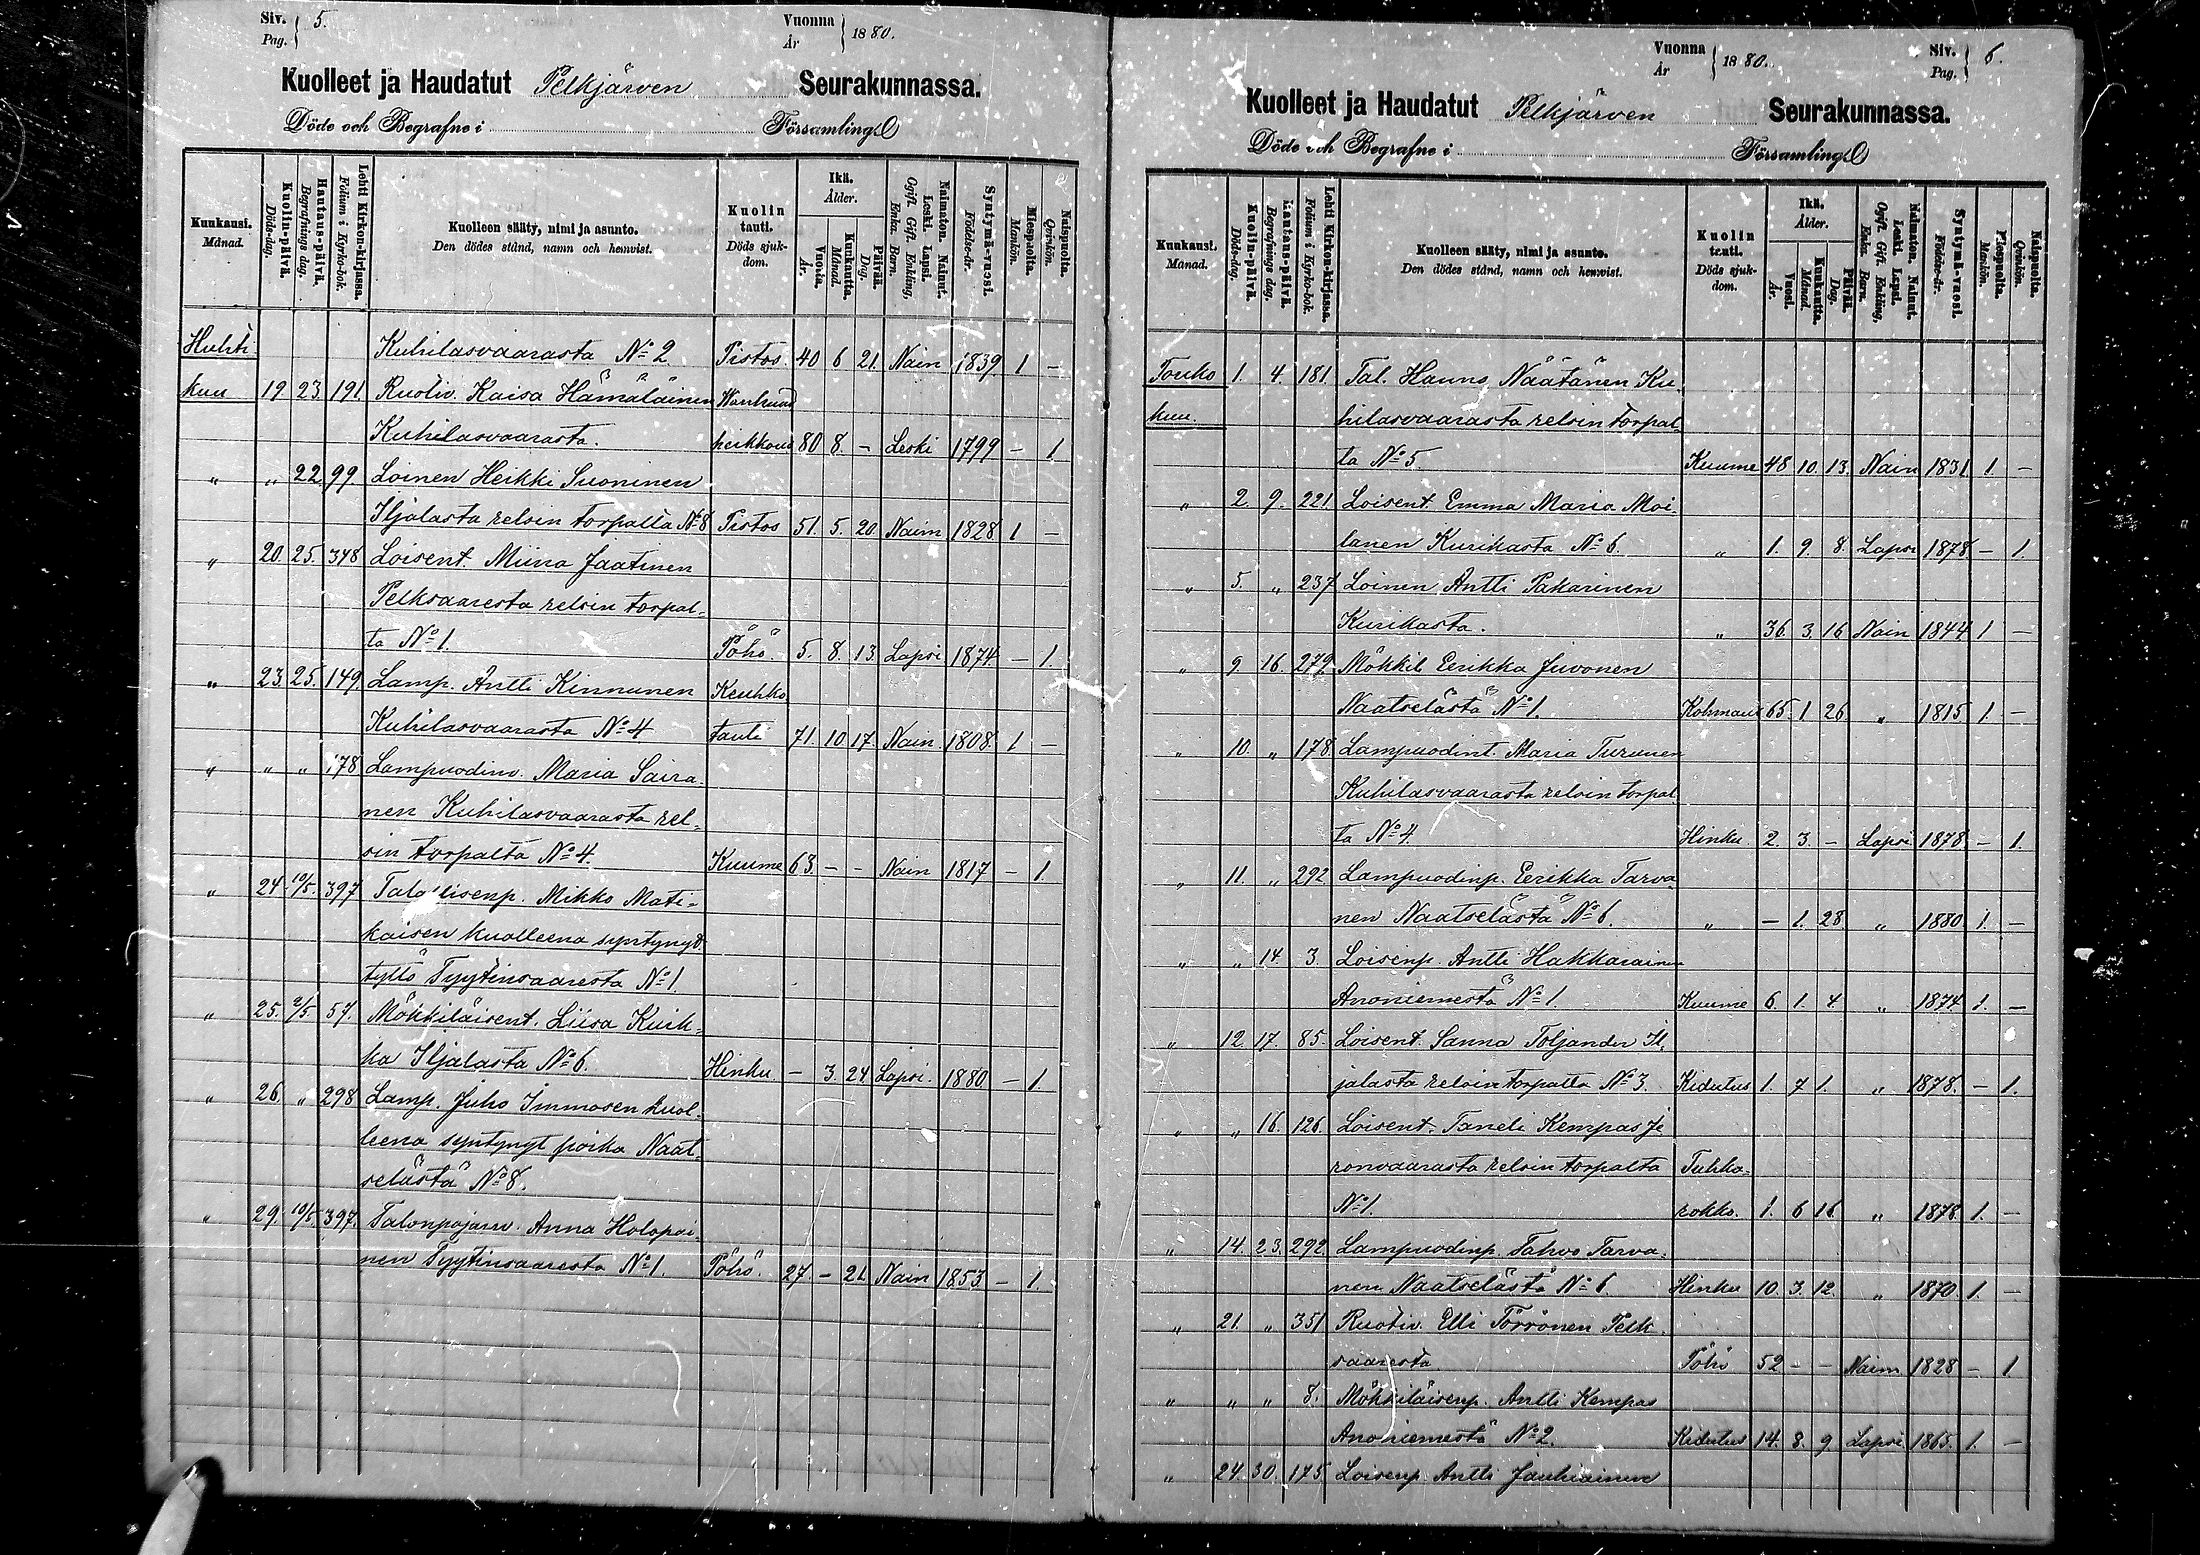 Siv. 5.
Pag.
Vuonna 1880.
År
Kuolleet ja Haudatut Pelkjärven Seurakunnassa.
Döde och Begrafne i Församling
Kuukausi. Månad.
Kuolin-päivä. Döds-dag.
Hautaus-päivä. Begrafnings dag.
Lehti Kirkon-kirjassa. Folium i Kyrko-bok.
Kuolleen sääty, nimi ja asunto.
Den dödes stånd, namn och hemvist.
Kuolin tauti. Döds sjukdom.
Ikä. Ålder.
Vuotta. År.
Kuukautta. Månad.
Päivää. Dag.
Naimaton. Nainut. Leski. Lapsi.
Ogift. Gift. Enkling, Enka. Barn.
Syntymä-vuosi. Födelse-år.
Miespuolta. Mankön.
Naispuolta. Qvinkön.
Huhti Kuhilasvaarasta No 2 Pistos 40 6 21. Nain 1839. 1 –
kuu 19. 23. 191. Ruotiv. Kaisa Hämäläinen Wanhuud
Kuhilasvaarasta. heikkous 80 8. – Leski 1799 – 1
" " 22. 99. Loinen Heikki Suoninen
Iljalasta relsin torpalta No 8 Pistos 51. 5. 20. Nain 1828 1 –
" 20. 25. 348 Loisent. Miina Jaatinen
Pelksaaresta relsin torpal-
ta No 1. Pöhö. 5. 8. 13. Lapsi 1874 – 1.
" 23. 25. 149. Lamp. Antti Kinnunen Keuhko
Kuhilasvaarasta No 4 tauti 71. 10 17. Nain 1808. 1 –
" " " 178 Lampuodinv. Maria Saira-
nen Kuhilasvaarasta rel-
sin torpalta No 4. Kuume 63. – – Nain 1817 – 1
" 24. 10/5. 397 Talollisenp. Mikko Mati-
kaisen kuolleena syntynyt
tyttö Tyytinsaaresta No 1.
" 25. 2/5 57. Mökkiläisent. Liisa Kuik-
ka Iljalasta No 6. Hinku – 3. 24 Lapsi. 1880 – 1.
" 26. " 298 Lamp. Juho Immosen kuol-
leena syntynyt poika Naat-
selästä No 8.
" 29. 10/5. 397. Talonpojanv. Anna Holopai-
nen Tyytinsaaresta No 1. Pöhö. 27. – 21. Nain 1853 – 1.
Vuonna 1880.
År
Siv. 6.
Pag.
Kuolleet ja Haudatut Pelkjärven Seurakunnassa.
Döde och Begrafne i Församling
Kuukausi. Månad.
Kuolin-päivä. Döds-dag.
Hautaus-päivä. Begrafnings dag.
Lehti Kirkon-kirjassa. Folium i Kyrko-bok.
Kuolleen sääty, nimi ja asunto.
Den dödes stånd, namn och hemvist.
Kuolin tauti. Döds sjukdom.
Ikä. Ålder.
Vuosi. År.
Kuukautta. Månad.
Päivää. Dag.
Naimaton. Nainut. Leski. Lapsi.
Ogift. Gift. Enkling, Enka. Barn.
Syntymä-vuosi. Födelse-år.
Miespuolta. Mankön.
Naispuolta. Qvinkön.
Touko 1. 4. 181. Tal. Hannu Näätänen Ku-
kuu. hilasvaarasta relsin torpal-
ta No 5 Kuume 48. 10. 13. Nain 1831 1. –
" 2. 9. 221. Loisent. Emma Maria Moi-
lanen Kurikasta No 6. " 1. 9. 8. Lapsi 1878 – 1.
" 5. " 237. Loinen Antti Pakarinen
Kurikasta. " 36. 3. 16 Nain 1844 1 –
" 9. 16. 279. Mökkil. Eerikka Juvonen
Naatselästä No 1. Kohmaus 65. 1. 26 " 1815 1. –
" 10. " 178. Lampuodint. Maria Turunen
Kuhilasvaarasta relsin torpal
ta No 4. Hinku 2. 3. – Lapsi 1878 – 1.
" 11. " 292 Lampuodinp. Eerikka Tarva-
nen Naatselästä No 6. " – 1. 28 " 1880. 1. –
" " 14. 3. Loisenp. Antti Hakkarainen
Anoniemestä No 1 Kuume 6. 1. 4. " 1874 1. –
" 12. 17. 85. Loisent. Sanna Toljander Il-
jalasta relsin torpalta No 3. Kidutus 1. 7 1. " 1878. – 1.
" " 16. 126. Loisent. Taneli Kempas Je
ronvaarasta relsin torpalta Tuhka-
No 1. rokko. 1. 6 16 " 1878 1. –
" 14. 23. 292. Lampuodinp. Tahvo Tarva-
nen Naatselästä No 6. Hinku 10. 3. 12. " 1870 1. –
" 21. " 351 Ruotiv. Elli Törrönen Pelk-
saaresta Pöhö 52 – – Nain 1828 – 1
" " " 8. Mökkiläisenp. Antti Kempas
Anoniemestä No 2. Kidutus 14. 8. 9 Lapsi 1865. 1. –
" 24. 30. 175. Loisenp. Antti Jauhiainen